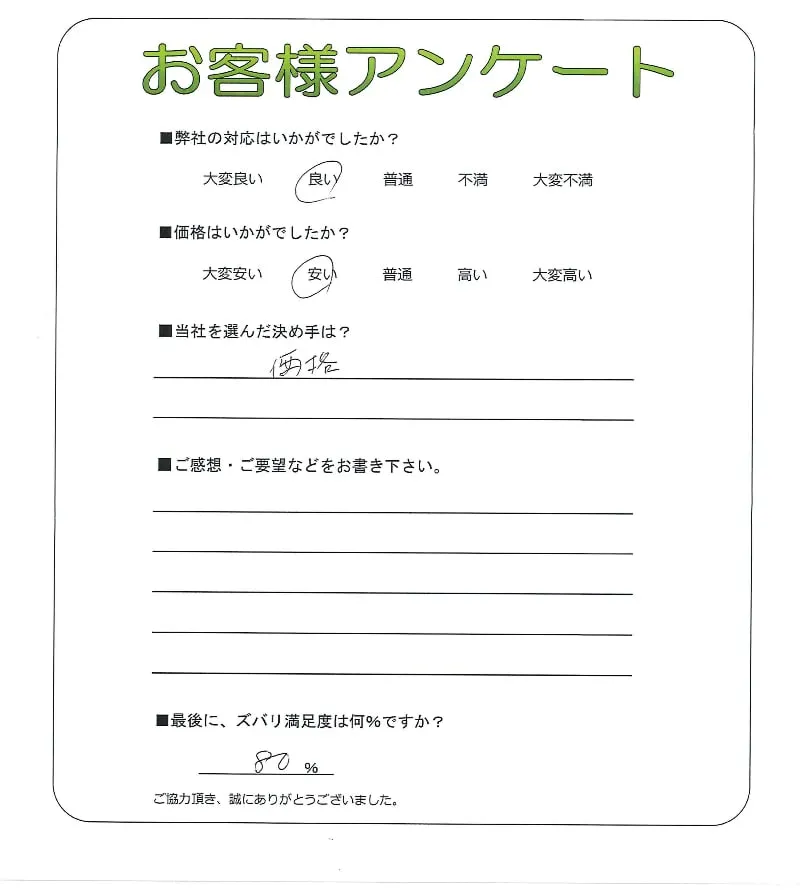 お客様アンケート
■弊社の対応はいかがでしたか？
大変良い 良い 普通 不満 大変不満
■価格はいかがでしたか？
大変安い 安い 普通 高い 大変高い
■当社を選んだ決め手は？
価格
■ご感想・ご要望などをお書き下さい。
■最後に、ズバリ満足度は何%ですか？
80 %
ご協力頂き、誠にありがとうございました。